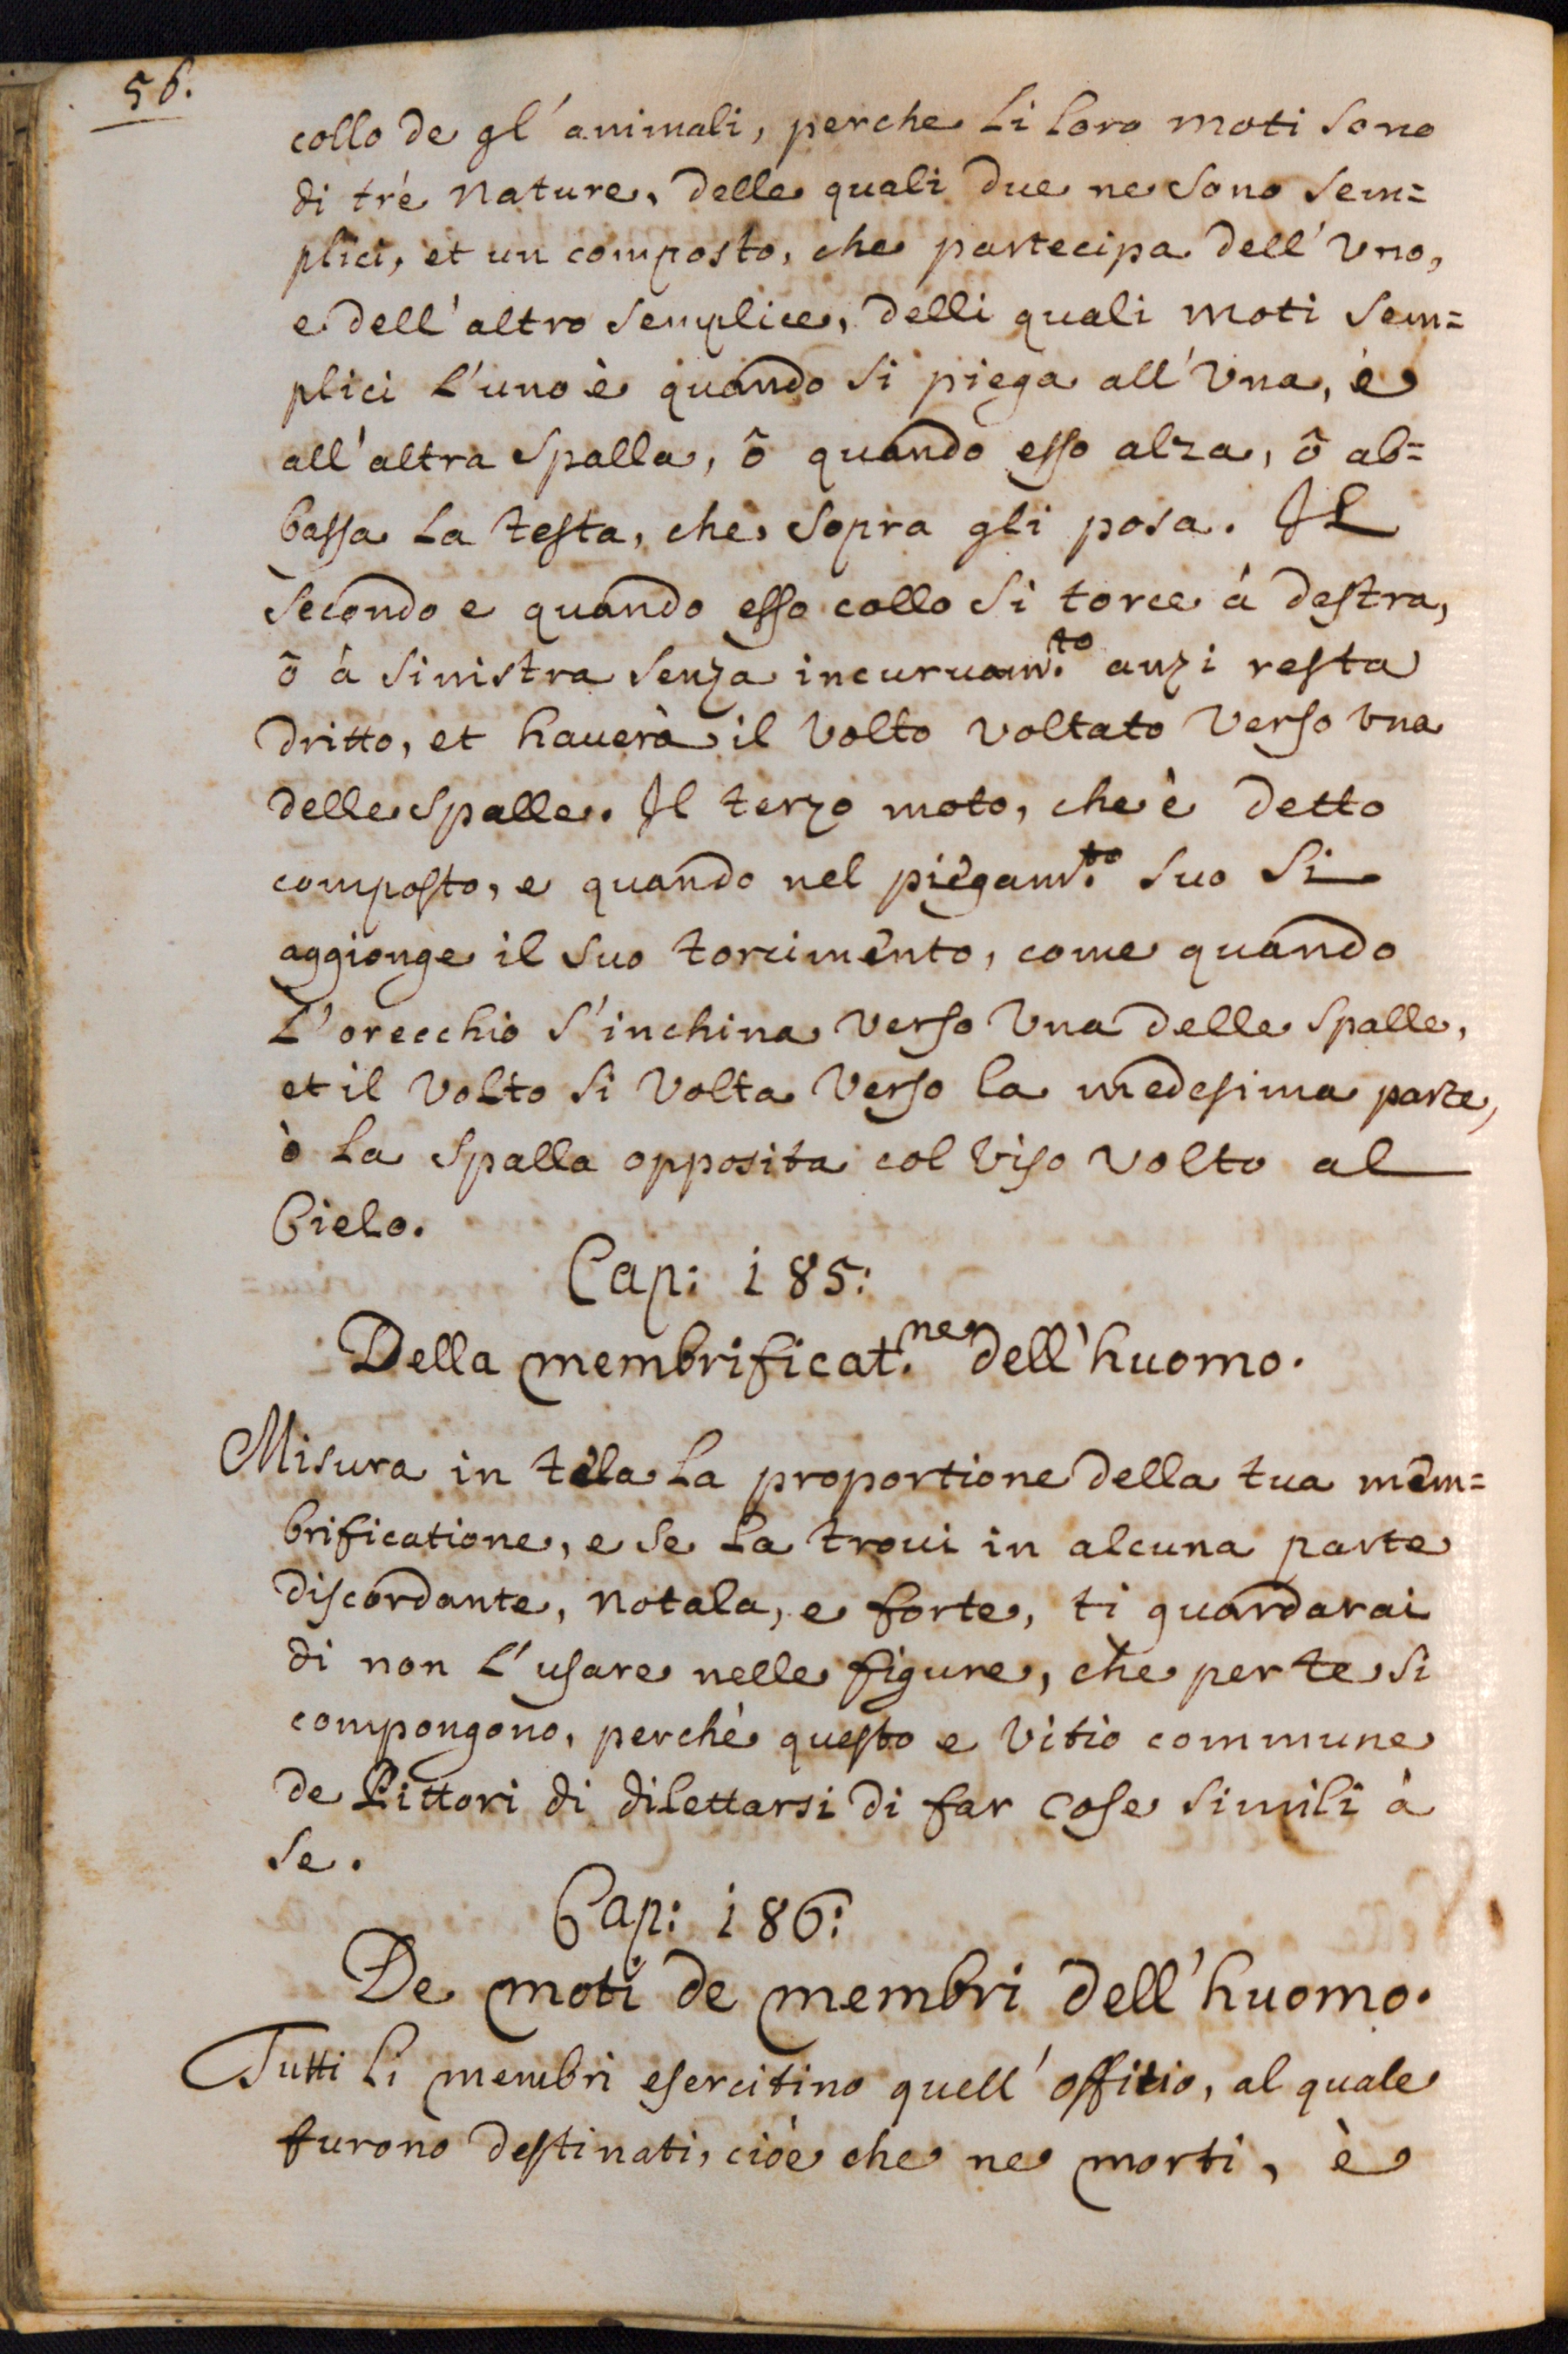 56.
collo de gl'animali, perche li loro moti sono
di trè nature, delle quali due ne sono sem=
plici, et un composto, che partecipa dell'Vno,
e dell'altro semplice, delli quali moti sem=
plici l'uno è quando si piega all'Vna, è
all'altra spalla, ô quando esso alza, ô ab=
bassa la testa, che sopra gli posa. Il
secondo e quando esso collo si torce á destra,
ô à sinistra senza incuruam.to anzi resta
dritto, et hauerà il Volto voltato verso vna
delle spalle. Il terzo moto, che è detto
composto, e quando nel piegam.to suo si
aggionge il suo torcimento, come quando
L'orecchio s'inchina verso Vna delle spalle,
et il Volto si Volta verso la medesima parte,
ò la spalla opposita col Viso volto al
Cielo.
Cap: 185:
Della membrificat.ne dell'huomo.
Misura in tela la proportione della tua mem=
brificatione, e se la troui in alcuna parte
discordante, notala, e forte, ti guardarai
di non l'usare nelle figure, che per te si
compongono, perchè questo e Vitio commune
de Pittori di dilettarsi di far cose simili à
se.
Cap: 186:
De moti de membri dell'huomo.
Tutti li membri esercitino quell'offitio, al quale
furono destinati, cioè che ne morti, è